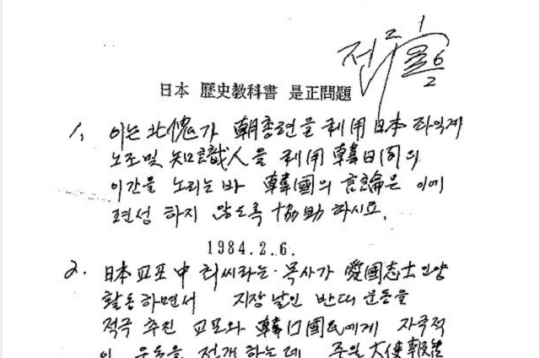 日本 歷史教科書 是正問題
1. 이는 北傀가 朝총련을 利用 日本 좌익계
노조및 知識人을 利用 韓日間의
이간을 노리는바 韓國의 言論은 이에
편성 하지 않도록 協助 하시요.
1984.2.6.
2. 日本 교포中 라는 목사가 愛國志士인양
활동하면서 지장날인 반대 운동을
적극 추진 교포와 韓國民에게 자극적
운동을 전개 하는데 주일 大使